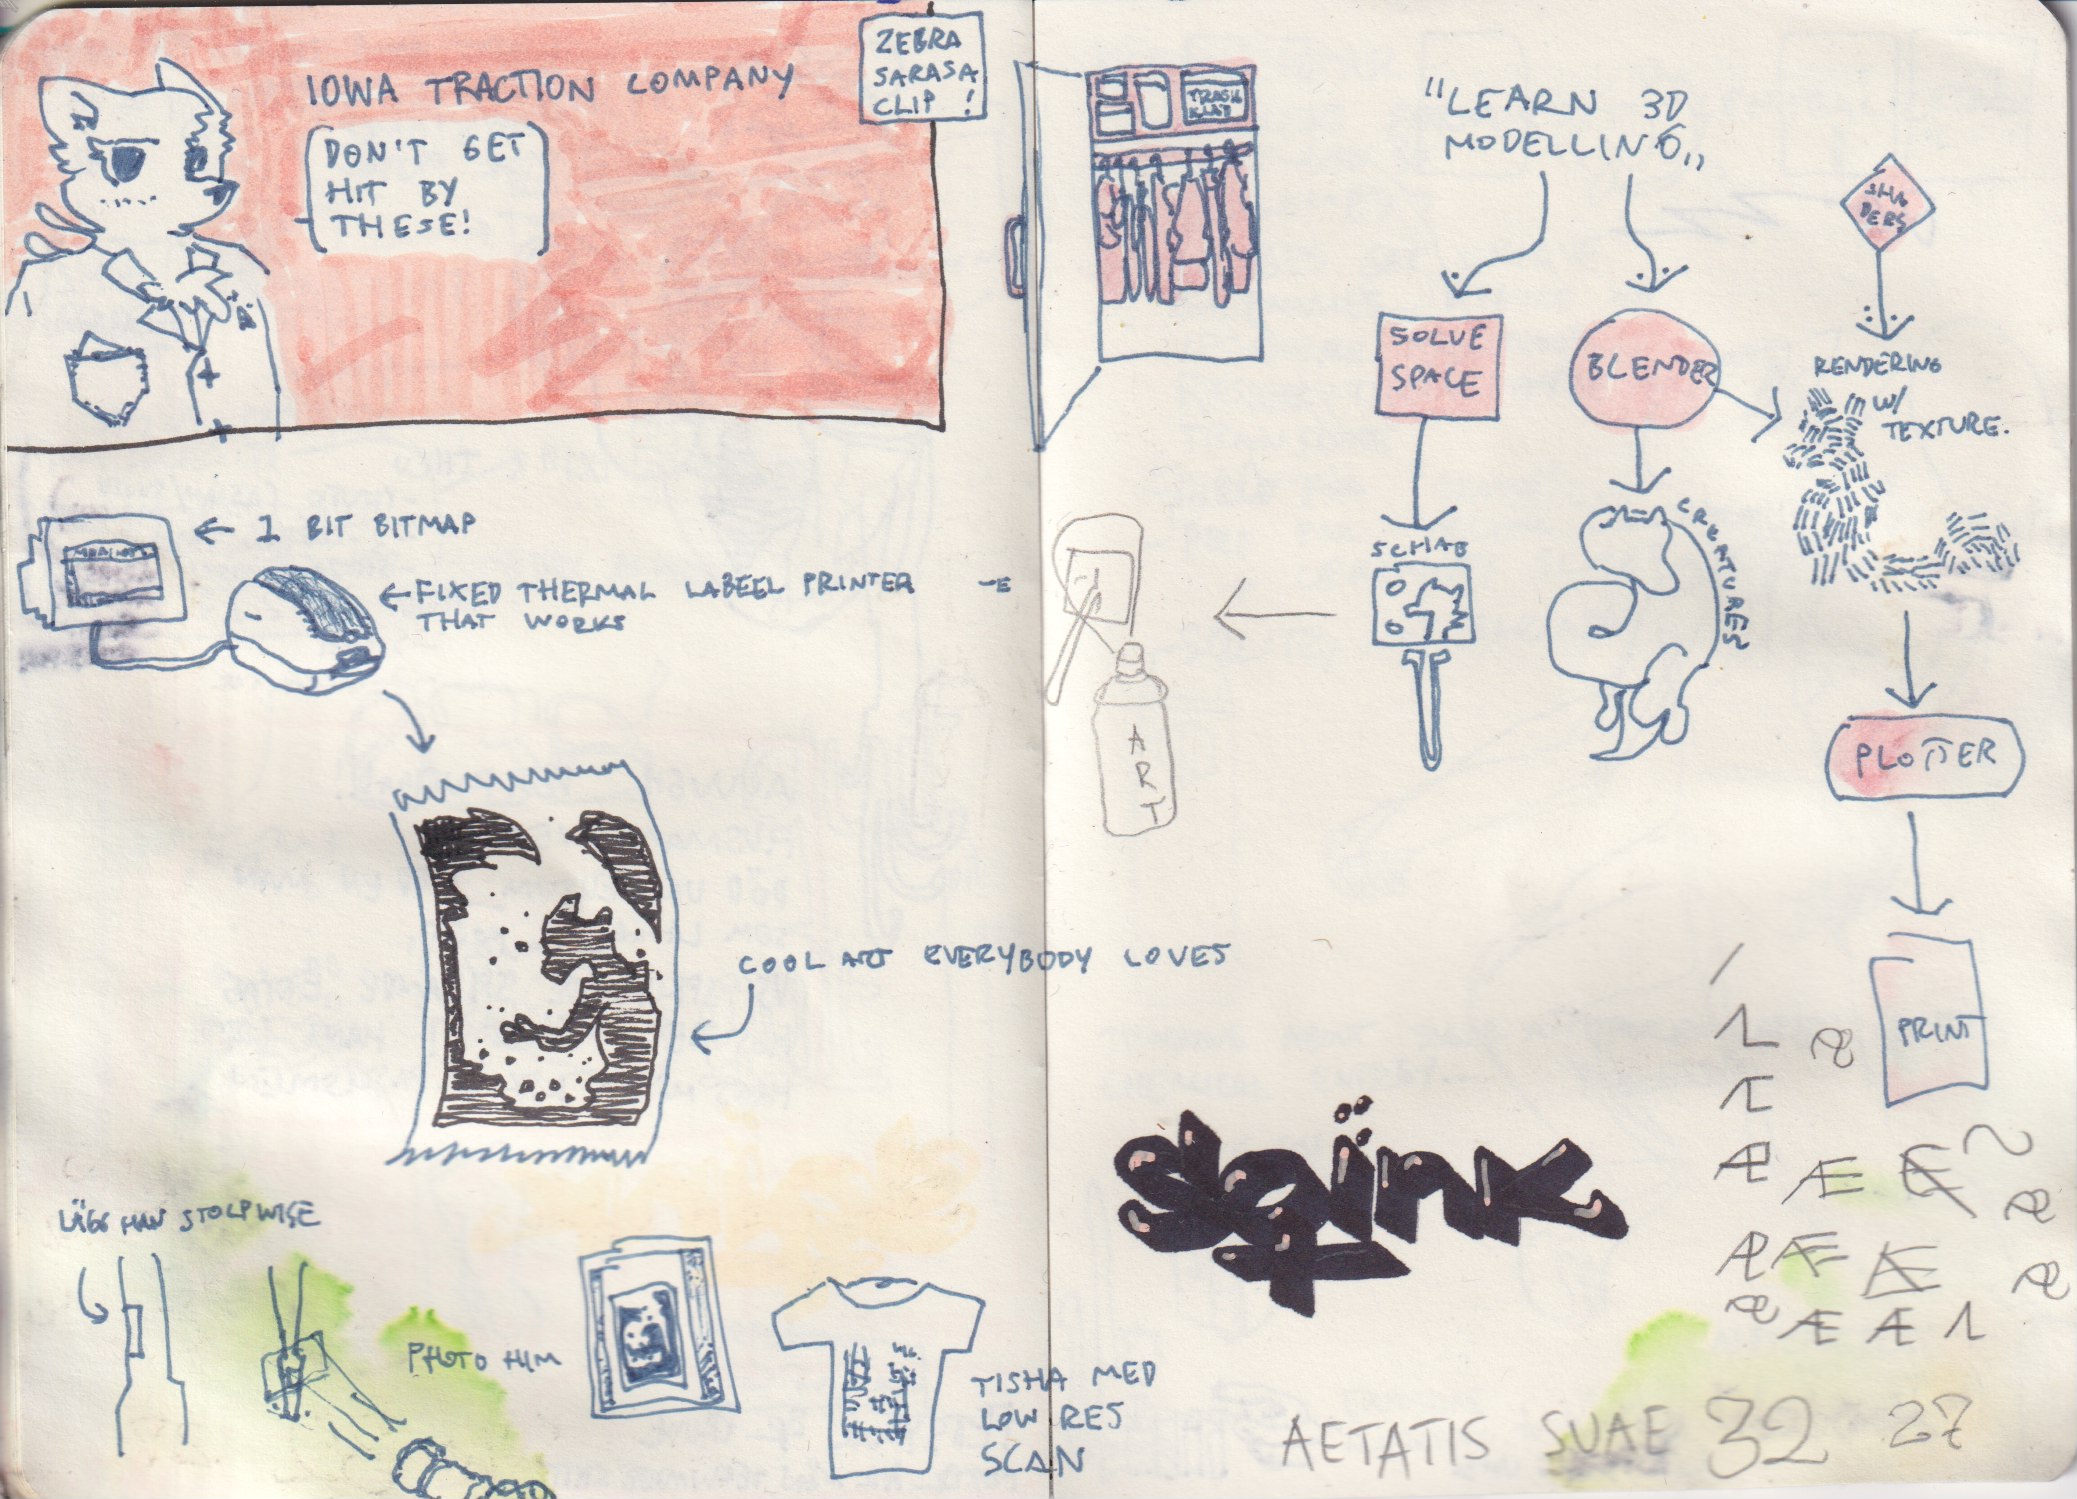 IOWA TRACTION COMPANY
DON'T GET
HIT BY
THESE!
ZEBRA
SARASA
CLIP!
1 BIT BITMAP
FIXED THERMAL LABEEL PRINTER
THAT WORKS
COOL ART EVERYBODY LOVES
LÄGG MAN STOLPWISE
PHOTO HIM
TISHA MED
LOW RES
SCAN
TRASH
"LEARN 3D
MODELLING„
SHA
DERS
SOLVE
SPACE
BLENDER
RENDERING
W/
TEXTURE.
SCHAB
CREATURES
ART
PLOTTER
PRINT
Æ
Æ
Æ
AETATIS SUAE 32 27